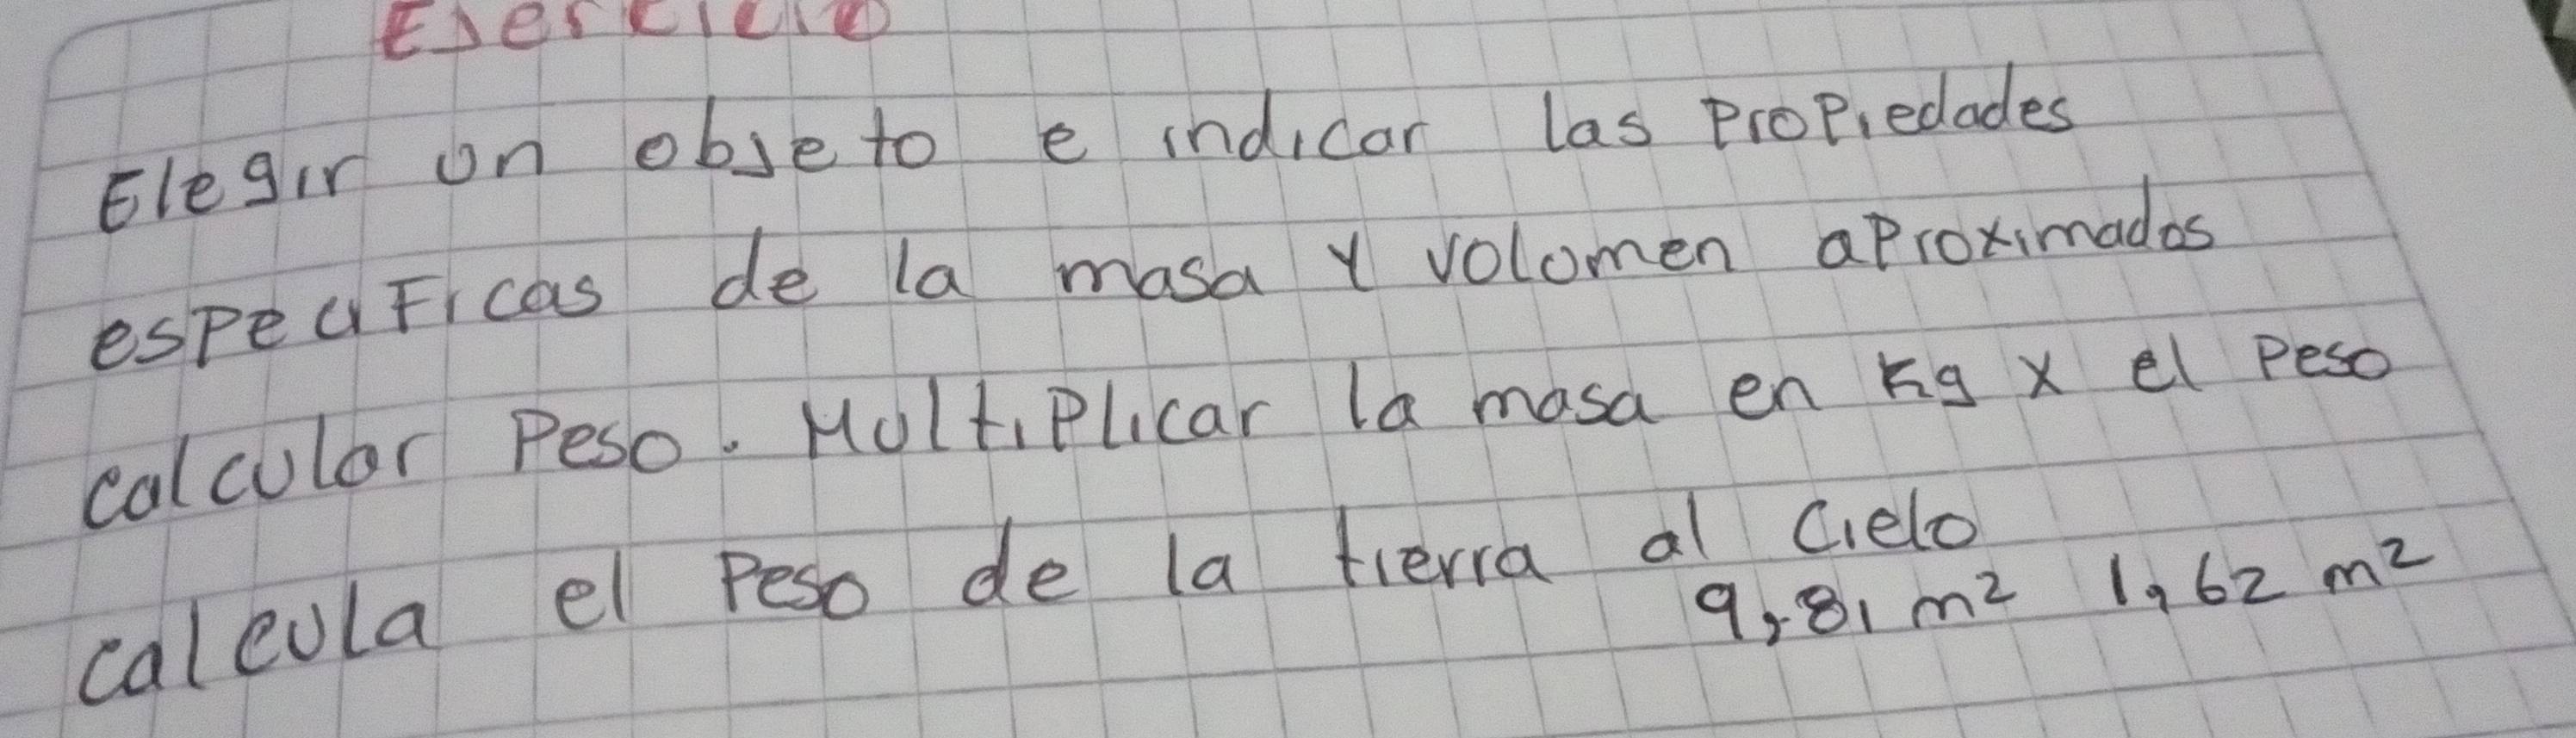 Ejercicio
Elegir un objeto e indicar las Propiedades
especificas de la masa y volomen aproximados
calcular Peso. Multiplicar la masa en kg x el Peso
calcula el Peso de la tierra al cielo
9,81 m² 1,62 m²